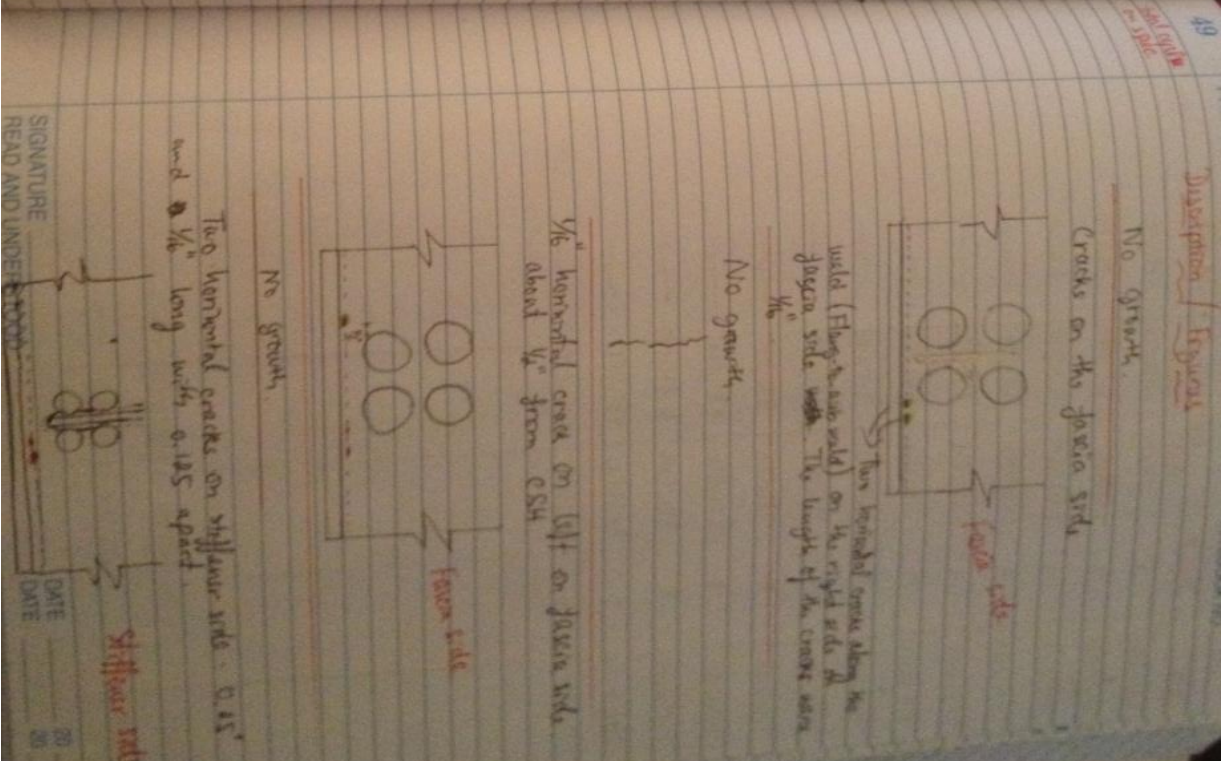 49
Description / Figures
No growth.
Cracks on the fascia side
Fascia side
Two horizontal cracks along the
weld (Flange to web weld) on the right side of
fascia side. The length of the cracks were
1/16"
No growth.
1/16" horizontal crack on left on fascia side
about 1/2" from CSH
Fascia side
No growth.
Two horizontal cracks on stiffener side -
and 1/16" long with 0.125 apart.
Stiffener
SIGNATURE
DATE 20
READ AND UNDERSTOOD
DATE 20